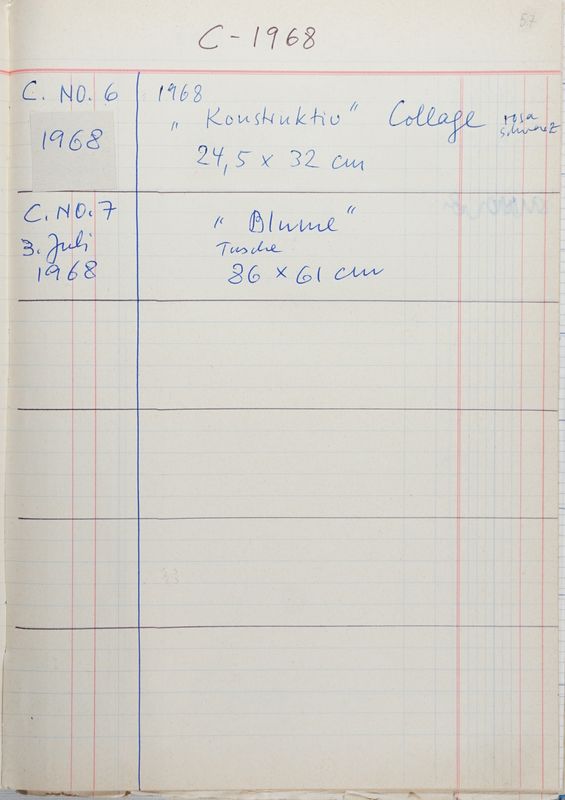 57
C-1968
C. NO. 6
1968
1968
„ Konstruktiv " Collage rosa
schwarz
24,5 x 32 cm
C. NO. 7
3. Juli
1968
„ Blume "
Tusche
86 x 61 cm